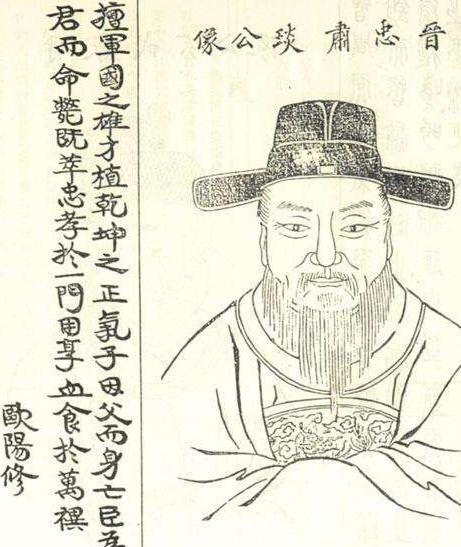 晉忠肅琰公像
擅軍國之雄才植乾坤之正氣子因父而身亡臣為
君而命斃既萃忠孝於一門用享血食於萬禩
歐陽修